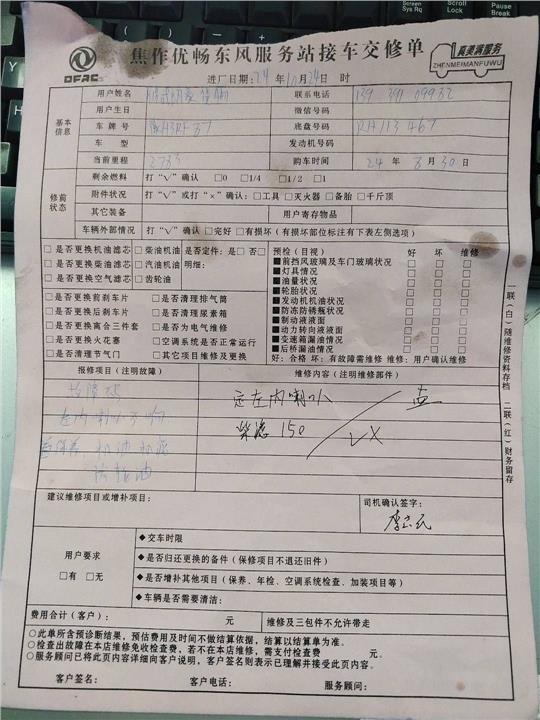 Screen
Sys Rq
Scroll
Lock
Pause
Break
DFAC
焦作优畅东风服务站接车交修单
真美满服务
ZHENMEIMANFUWU
进厂日期:24年10月24日 时
基本信息
用户姓名
联系电话
用户生日 微信号码
车牌号 底盘号码 RH113467
车型 发动机号码
当前里程 2733 购车时间 24年8月30日
修前状态
剩余燃料 打“√”确认 □0 □1/4 □1/2 □1
附件状况 打“√”或打“×”确认:□工具 □灭火器 □备胎 □千斤顶
其它装备 用户寄存物品
车辆外部情况 打“√”确认 □完好 □有损坏(有损坏部位标注有下表左侧选项)
□是否更换机油滤芯 □柴油机油 □是否定件:是□ 否□
□是否更换柴油滤芯 □汽油机油 明细:
□是否更换空气滤芯 □齿轮油
□是否更换前刹车片 □是否清理排气筒
□是否更换后刹车片 □是否清理尿素箱
□是否更换离合三件套 □是否为电气维修
□是否更换火花塞 □空调系统是否正常运行
□是否清理节气门 □其它项目维修及更换
预检(目视) 好 坏 维修
■前挡风玻璃及车门玻璃状况 □ □ □
■灯具情况 □ □ □
■油量状况 □ □ □
■轮胎状况 □ □ □
■发动机机油状况 □ □ □
■防冻防锈瓶状况 □ □ □
■制动液液面 □ □ □
■动力转向液液面 □ □ □
■变速箱漏油情况 □ □ □
■后桥漏油情况 □ □ □
好:合格 坏:有故障需维修 维修:用户确认维修
报修项目(注明故障) 维修内容(注明维修部件)
故障码
左内喇叭不响 定左内喇叭
柴滤 150
首保养 机油 机滤
齿轮油
一联(白)随维修资料存档 二联(红)财务留存
建议维修项目或增补项目: 司机确认签字:
用户要求
□有 □无
◆交车时限
◆是否归还更换的备件(保修项目不退还旧件)
◆是否增补其他项目(保养、年检、空调系统检查、加装项目等)
◆车辆是否需要清洁:
费用合计(客户): 元 维修及三包件不允许带走
○此单所含预诊断结果,预估费用及时间不做结算依据,结算以结算单为准。
○检查出故障在本店维修免收检查费,若不在本店维修,需支付检查费 元。
○服务顾问已将此页内容详细向客户说明,客户签名则表示已理解并接受此页内容。
客户签名: 客户电话: 服务顾问: